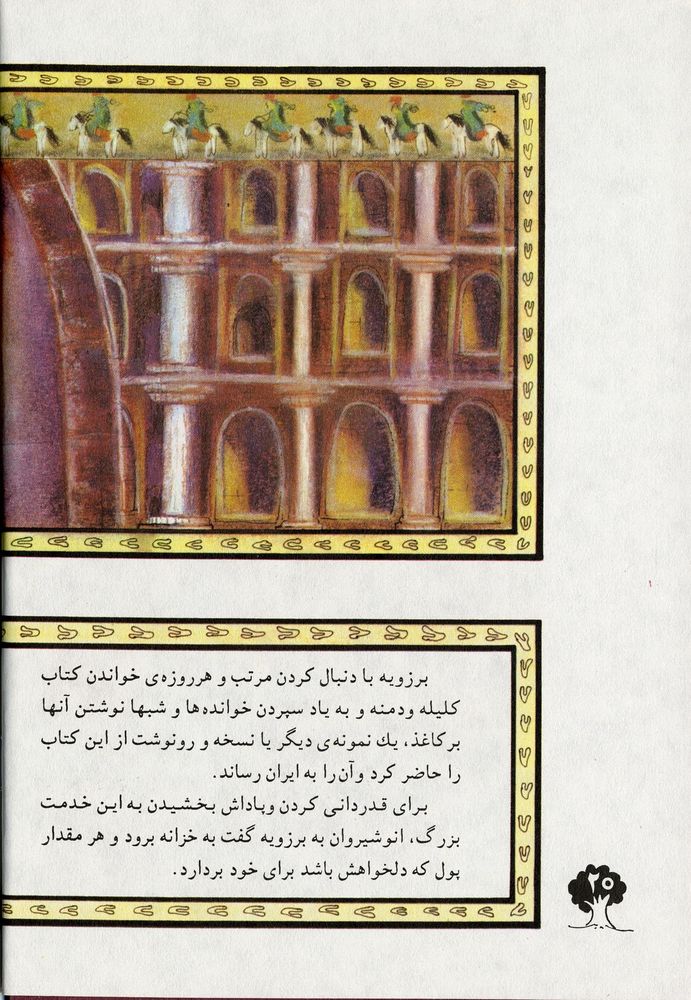 برزویه با دنبال کردن مرتب و هرروزه‌ی خواندن کتاب
کلیله ودمنه و به یاد سپردن خوانده‌ها و شبها نوشتن آنها
برکاغذ، یك نمونه‌ی دیگر یا نسخه و رونوشت از این کتاب
را حاضر کرد وآن‌را به ایران رساند.
برای قدردانی کردن وپاداش بخشیدن به این خدمت
بزرگ، انوشیروان به برزویه گفت به خزانه برود و هر مقدار
پول که دلخواهش باشد برای خود بردارد.